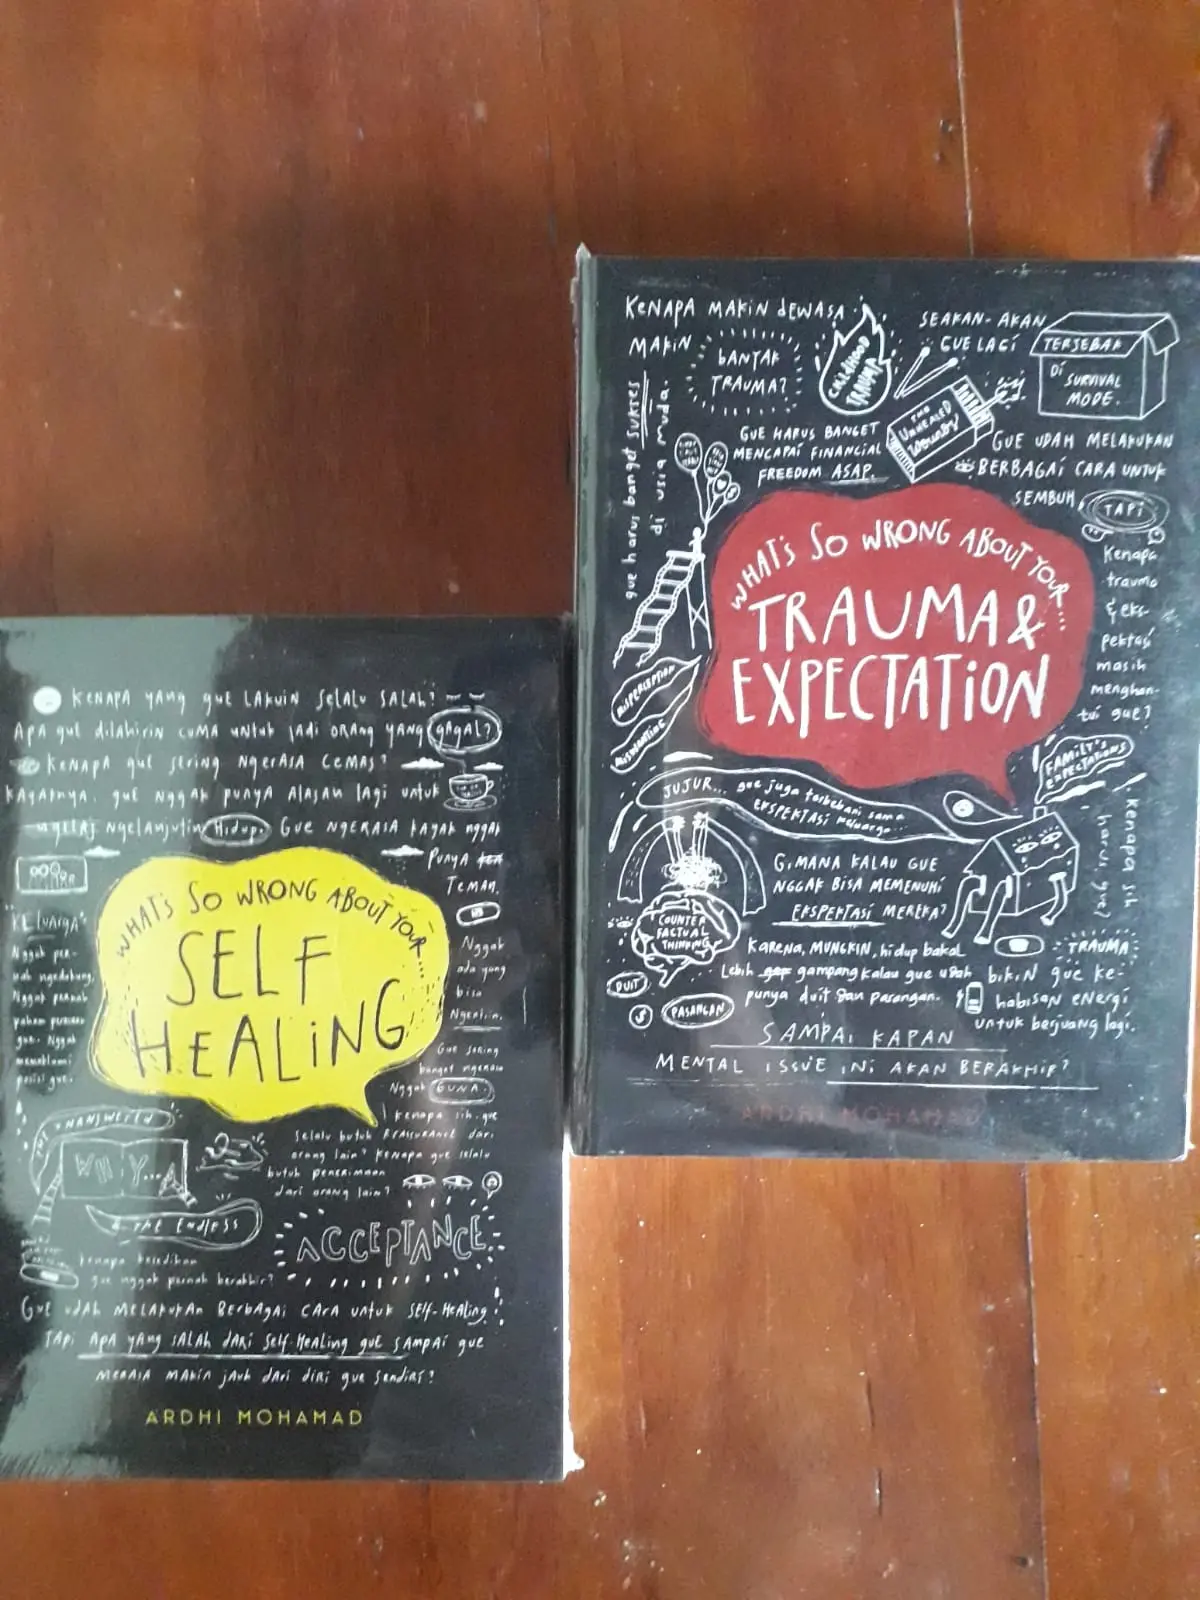 KENAPA YANG gue LAKUIN SELALU SALAH?
APA gue dilahirin CUMA UNTUK JADI ORANG YANG GAGAL?
KENAPA gue SERING NGERASA CEMAS?
KAYAKNYA, gue NGGAK PUNYA ALASAN lagi UNTUK
Ngelanjutin Hidup. GUE NGERASA KAYAK NGGAK
PUNYA
TEMAN.
KELUARGA
Nggak per-
nah ngedukung,
Nggak pernah
paham
gue. Nggak
posisi gue.
WHAT'S SO WRONG ABOUT YOUR...
SELF
HEALING
Nggak
ada yang
bisa
Ngertiin.
Gue sering
banget ngerasa
Nggak GUNA.
Kenapa sih gue
selalu butuh REASSURANCE dari
orang lain? Kenapa gue selalu
butuh penerimaan
dari orang lain?
THE UNANSWERED
WHY...
& THE ENDLESS
ACCEPTANCE
Kenapa kesedihan
gue nggak pernah berakhir?
GUE UDAH MELAKUKAN BERBAGAI CARA UNTUK SELF-HEALING.
TAPI APA YANG SALAH DARI SELF-HEALING gue SAMPAI gue
MERASA MAKIN JAUH DARI DIRI gue SENDIRI?
ARDHI MOHAMAD
KENAPA MAKIN DEWASA
MAKIN
BANYAK
TRAUMA?
CHILDHOOD
TRAUMA
SEAKAN-AKAN
GUE LAGI
TERJEBAK
DI SURVIVAL
MODE.
THE
UNHEALED
WOUNDS
gue harus banget SUKSES
di usia muda.
GUE HARUS BANGET
MENCAPAI FINANCIAL
FREEDOM ASAP.
GUE UDAH MELAKUKAN
BERBAGAI CARA UNTUK
SEMBUH, TAPI
Kenapa
trauma
& eks-
pektasi
masih
menghan-
tui gue?
WHAT'S SO WRONG ABOUT YOUR...
TRAUMA &
EXPECTATION
MISPERCEPTION
MISWANTING
FAMILY'S
EXPECTATIONS
JUJUR... gue juga terbebani sama
EKSPEKTASI keluarga...
Kenapa sih
harus gue?
GIMANA KALAU GUE
NGGAK BISA MEMENUHI
EKSPEKTASI MEREKA?
COUNTER
FACTUAL
THINKING
KARENA, MUNGKIN, hidup bakal
Lebih gampang kalau gue udah
punya duit dan pasangan.
DUIT
PASANGAN
TRAUMA
bikin gue ke-
habisan energi
untuk berjuang lagi.
SAMPAI KAPAN
MENTAL ISSUE INI AKAN BERAKHIR?
ARDHI MOHAMAD